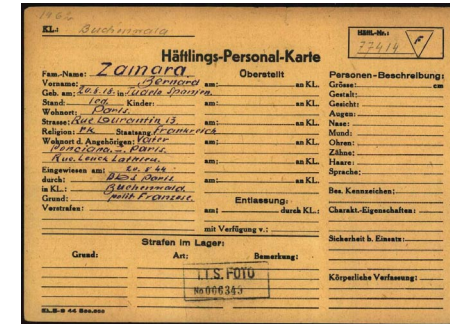 KL.: Buchenwald
Häftl.-Nr.:
77414 F
Häftlings-Personal-Karte
Fam.-Name: Zamara
Vorname: Bernard
Geb. am: 20.8.18. in Tudela Spanien.
Stand: led. Kinder:
Wohnort: Paris.
Strasse: Rue Laurantin 13.
Religion: rk. Staatsang. Frankreich
Wohnort d. Angehörigen: Vater
Paris.
Rue.
Eingewiesen am: 20.8.44
durch: BdS Paris.
in KL.: Buchenwald.
Grund: polit. Franzose.
Vorstrafen:
Überstellt
am: an KL.
am: an KL.
am: an KL.
am: an KL.
am: an KL.
am: an KL.
Entlassung:
am: durch KL.:
mit Verfügung v.:
Personen-Beschreibung:
Grösse: cm
Gestalt:
Gesicht:
Augen:
Nase:
Mund:
Ohren:
Zähne:
Haare:
Sprache:
Bes. Kennzeichen:
Charakt.-Eigenschaften:
Sicherheit b. Einsatz:
Körperliche Verfassung:
Strafen im Lager:
Grund: Art: Bemerkung:
I.T.S. FOTO
No 066343